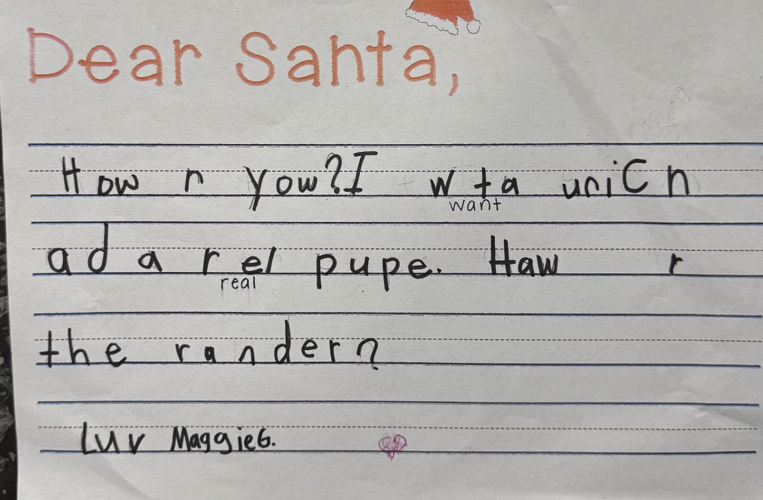 Dear Santa,
How n yow? I wta uniCn
want
ad a rel pupe. Haw r
real
the rander?
Luv Maggie G.